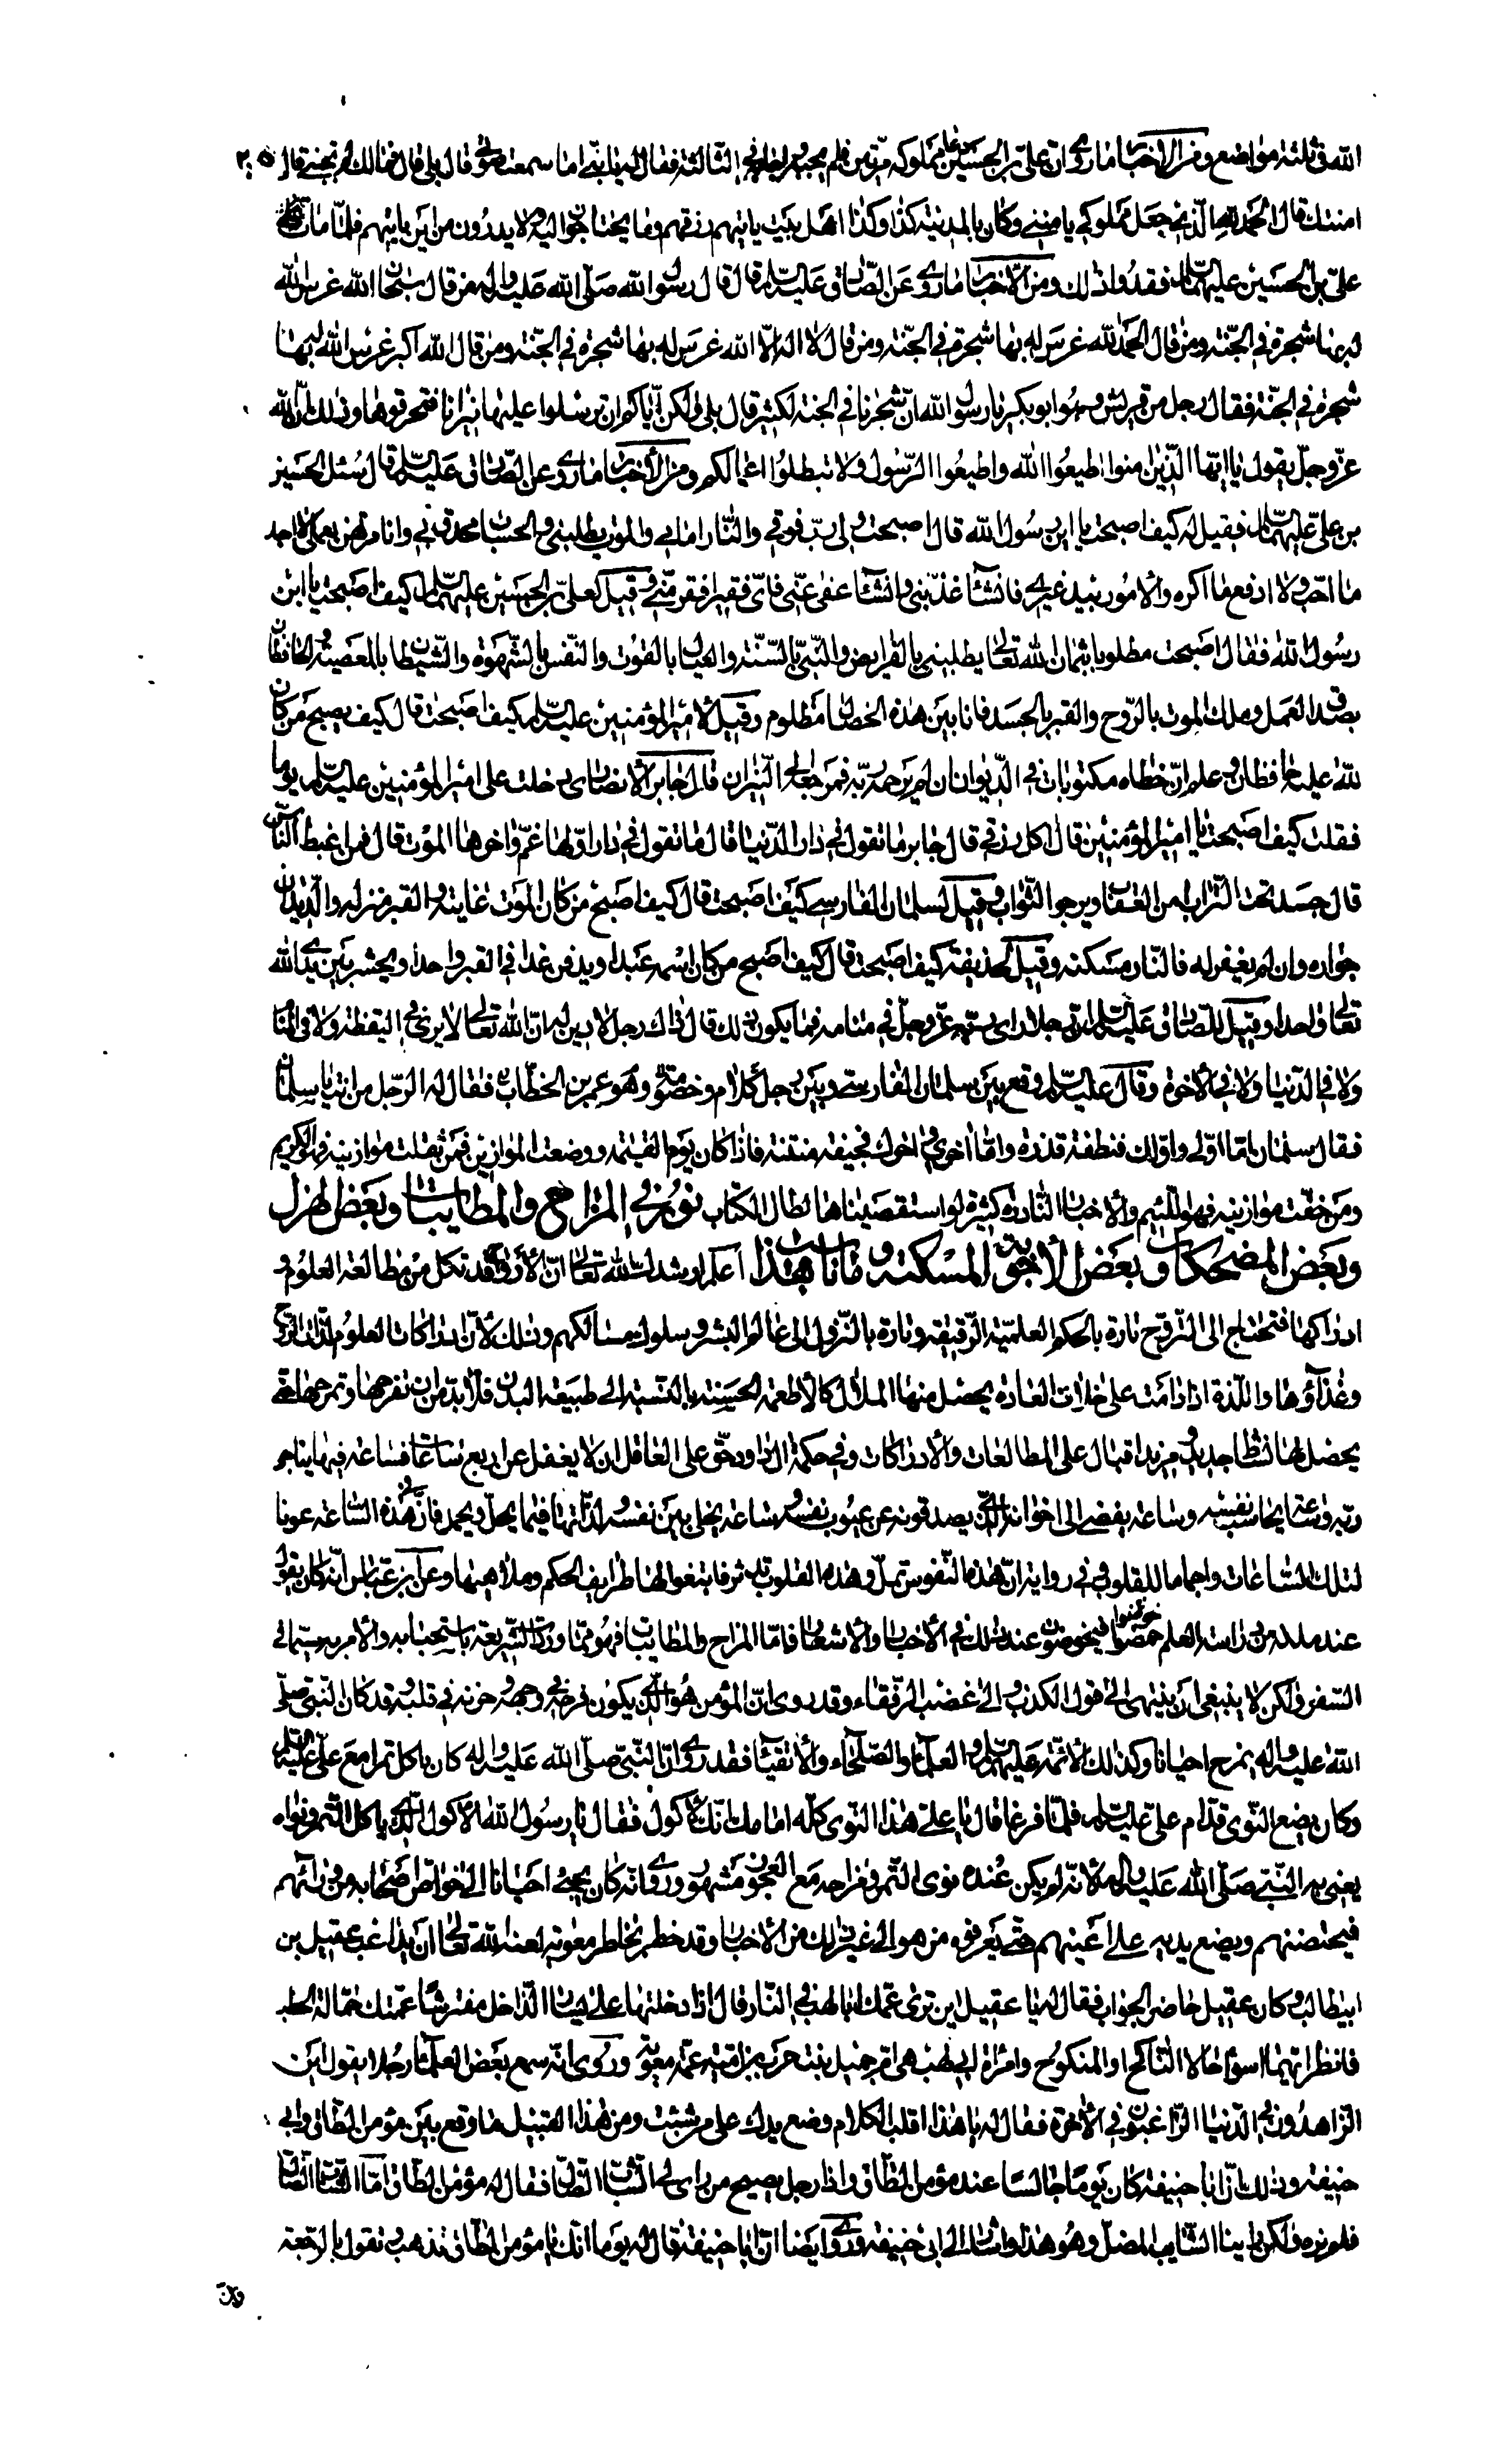 الله فى ثلثة مواضع ومن الاخبار ما روى ان على بن الحسين دعا مملوكه مرتين فلم يجبه واجابه فى الثالثة فقال له يا بنى اما سمعت صوتى قال بلى قال فما لك لم تجبنى قال ٢٠٥
امنتك قال الحمد لله الذى جعل مملوكى يامننى وكان بالمدينة كذا وكذا اهل بيت ياتيهم رزقهم وما يحتاجون اليه ولا يدرون من اين ياتيهم فلما مات
على بن الحسين عليهما السلام فقدوا ذلك ومن الاخبار ما روى عن الصادق عليه السلام قال قال رسول الله صلى الله عليه واله من قال سبحان الله غرس الله
له بها شجرة فى الجنة ومن قال الحمد لله غرس له بها شجرة فى الجنة ومن قال لا اله الا الله غرس له بها شجرة فى الجنة ومن قال الله اكبر غرس الله له بها
شجرة فى الجنة فقال رجل من قريش وهو ابو بكر يا رسول الله ان شجرنا فى الجنة لكثير قال بلى ولكن اياكم ان ترسلوا عليها نيرانا فتحرقوها وذلك ان الله
عز وجل يقول يا ايها الذين امنوا اطيعوا الله واطيعوا الرسول ولا تبطلوا اعمالكم ومن الاخبار ما روى عن الصادق عليه السلام قال سئل الحسين
بن على عليهما السلام فقيل له كيف اصبحت يا ابن رسول الله قال اصبحت ولى رب فوقى والنار امامى والموت يطلبنى والحساب محدق بى وانا مرتهن بعملى لا اجد
ما احب ولا ادفع ما اكره والامور بيد غيرى فان شاء عذبنى وان شاء عفى عنى فاى فقير افقر منى وقيل لعلى بن الحسين عليهما السلام كيف اصبحت يا ابن
رسول الله فقال اصبحت مطلوبا بثمان الله تعالى يطلبنى بالفرايض والنبى بالسنة والعيال بالقوت والنفس بالشهوة والشيطان بالمعصية والحافظان
بصدق العمل وملك الموت بالروح والقبر بالجسد فانا بين هذه الخصال مظلوم وقيل لامير المؤمنين عليه السلام كيف اصبحت قال كيف يصبح من كان
لله عليه حافظان وعلم ان خطاه مكتوبات فى الديوان ان لم يرحمه ربه فمرجعه الى النيران قال جابر الانصارى دخلت على امير المؤمنين عليه السلام يوما
فقلت كيف اصبحت يا امير المؤمنين قال اكل رزقى قال جابر ما تقول فى دار الدنيا قال ما تقول فى دار اولها غم واخرها الموت قال فمن اغبط الناس
قال جسد تحت التراب امن العقاب ويرجو الثواب وقيل لسلمان الفارسى كيف اصبحت قال كيف اصبح من كان الموت غايته والقبر منزله والديدان
جواره وان لم يغفر له فالنار مسكنه وقيل لحذيفة كيف اصبحت قال كيف اصبح من كان اسمه عبدا ويدفن غدا فى القبر واحدا ويحشر بين يدى الله
تعالى واحدا وقيل للصادق عليه السلام ان رجلا راى ربه عز وجل فى منامه فما يكون ذلك قال ذاك رجل لا دين له ان الله تعالى لا يرى فى اليقظة ولا فى المنام
ولا فى الدنيا ولا فى الاخرة وقال عليه السلام وقع بين سلمان الفارسى وبين رجل كلام وخصومة وهو عمر بن الخطاب فقال له الرجل من انت يا سلمان
فقال سلمان اما اولى واولك فنطفة قذرة واما اخرى واخرك فجيفة منتنة فاذا كان يوم القيمة ووضعت الموازين فمن ثقلت موازينه فهو الكريم
ومن خفت موازينه فهو اللئيم والاخبار النادرة كثيرة لو استقصيناها لطال الكتاب نور فى المزاح والمطايبات وبعض الهزل
وبعض المضحكات وبعض الاجوبة المسكتة وما ناسب هذا اعلم ارشدك الله تعالى ان الاذهان قد تكل من مطالعة العلوم و
ادراكها فتحتاج الى التروح تارة بالحكم العلمية الرقيقة وتارة بالنزول الى عالم البشر وسلوك مسالكهم وذلك لان ادراكات العلوم لذات الروح
وغذاؤها واللذة اذا دامت على خلاف العادة يحصل منها الملال كالاطعمة الحسنة بالنسبة الى طبيعة البدن فلا بد من ان تفرحها وتمرحها حتى
يحصل لها نشاط جديد ومزيد اقبال على المطالعات والادراكات وفى حكمة ال داود حق على العاقل ان لا يغفل عن اربع ساعات فساعة فيها يناجى
ربه وساعة يحاسب نفسه وساعة يفضى الى اخوانه الذين يصدقونه عن عيوب نفسه وساعة يخلى بين نفسه ولذاتها فيما يحل ويحمد فان فى هذه الساعة عونا
لتلك الساعات واجماما للقلوب وفى رواية ان هذه النفوس تمل وهذه القلوب تدثر فابتغوا لها طرايف الحكم وملاهيها وعن ابن عباس انه كان يقول
عند ملله من دراسة العلم حمضوا خوضوا فيخوضون عند ذلك فى الاخبار والاشعار فاما المزاح والمطايبات فهو مما وردت الشريعة باستحبابه والامر به سيما فى
السفر ولكن لا ينبغى ان ينتهى الى قول الكذب والى غضب الرفقاء وقد روى ان المؤمن هو الذى يكون فرحه فى وجهه وحزنه فى قلبه وقد كان النبى صلى
الله عليه واله يمزح احيانا وكذلك الائمة عليهم السلام والعلماء والصلحاء والاتقياء فقد روى ان النبى صلى الله عليه واله كان ياكل تمرا مع على عليه السلام
وكان يضع النوى قدام على عليه السلام فلما فرغا قال يا على هذا النوى كله امامك انك لاكول فقال يا رسول الله الاكول الذى ياكل التمر ونواه
يعنى به النبى صلى الله عليه واله لانه لم يكن عنده نوى التمر ومزاحه مع العجوز مشهور وروى انه كان يجىء احيانا الى خواص اصحابه من ورائهم
فيحتضنهم ويضع يديه على اعينهم حتى يعرفوه من هو الى غير ذلك من الاخبار وقد خطر بخاطر معوية لعنه الله تعالى ان يداعب عقيل بن
ابيطالب وكان عقيل حاضر الجواب فقال له يا عقيل اين ترى عمك ابا لهب فى النار قال اذا دخلتها على يسار الداخل مفترشا عمتك حمالة الحطب
فانظر ايهما اسوء حالا الناكح او المنكوح وامراة ابى لهب هى ام جميل بنت حرب بن امية عمة معوية وروى انه سمع بعض العلماء رجلا يقول اين
الزاهدون فى الدنيا الراغبون فى الاخرة فقال له يا هذا اقلب الكلام وضع يدك على من شئت ومن هذا القبيل ما وقع بين مؤمن الطاق وابى
حنيفة وذلك ان ابا حنيفة كان يوما جالسا عند مؤمن الطاق واذا رجل يصيح من راى لى الشاب الضال فقال له مؤمن الطاق اما الشاب الضال
فلم نره ولكن راينا الشايب المضل وهو هذا واشار الى ابى حنيفة وروى ايضا ان ابا حنيفة قال له يوما انك يا مؤمن الطاق تذهب وتقول بالرجعة